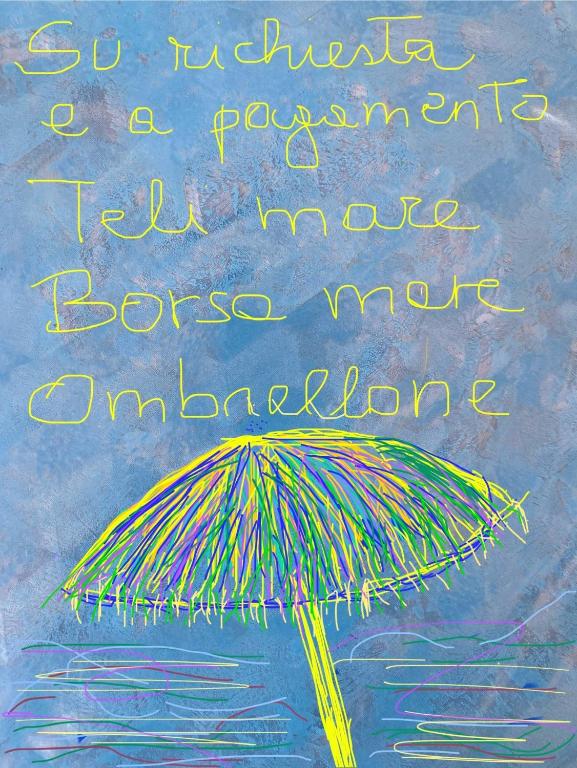 Su richiesta
e a pagamento
Teli mare
Borsa mare
Ombrellone